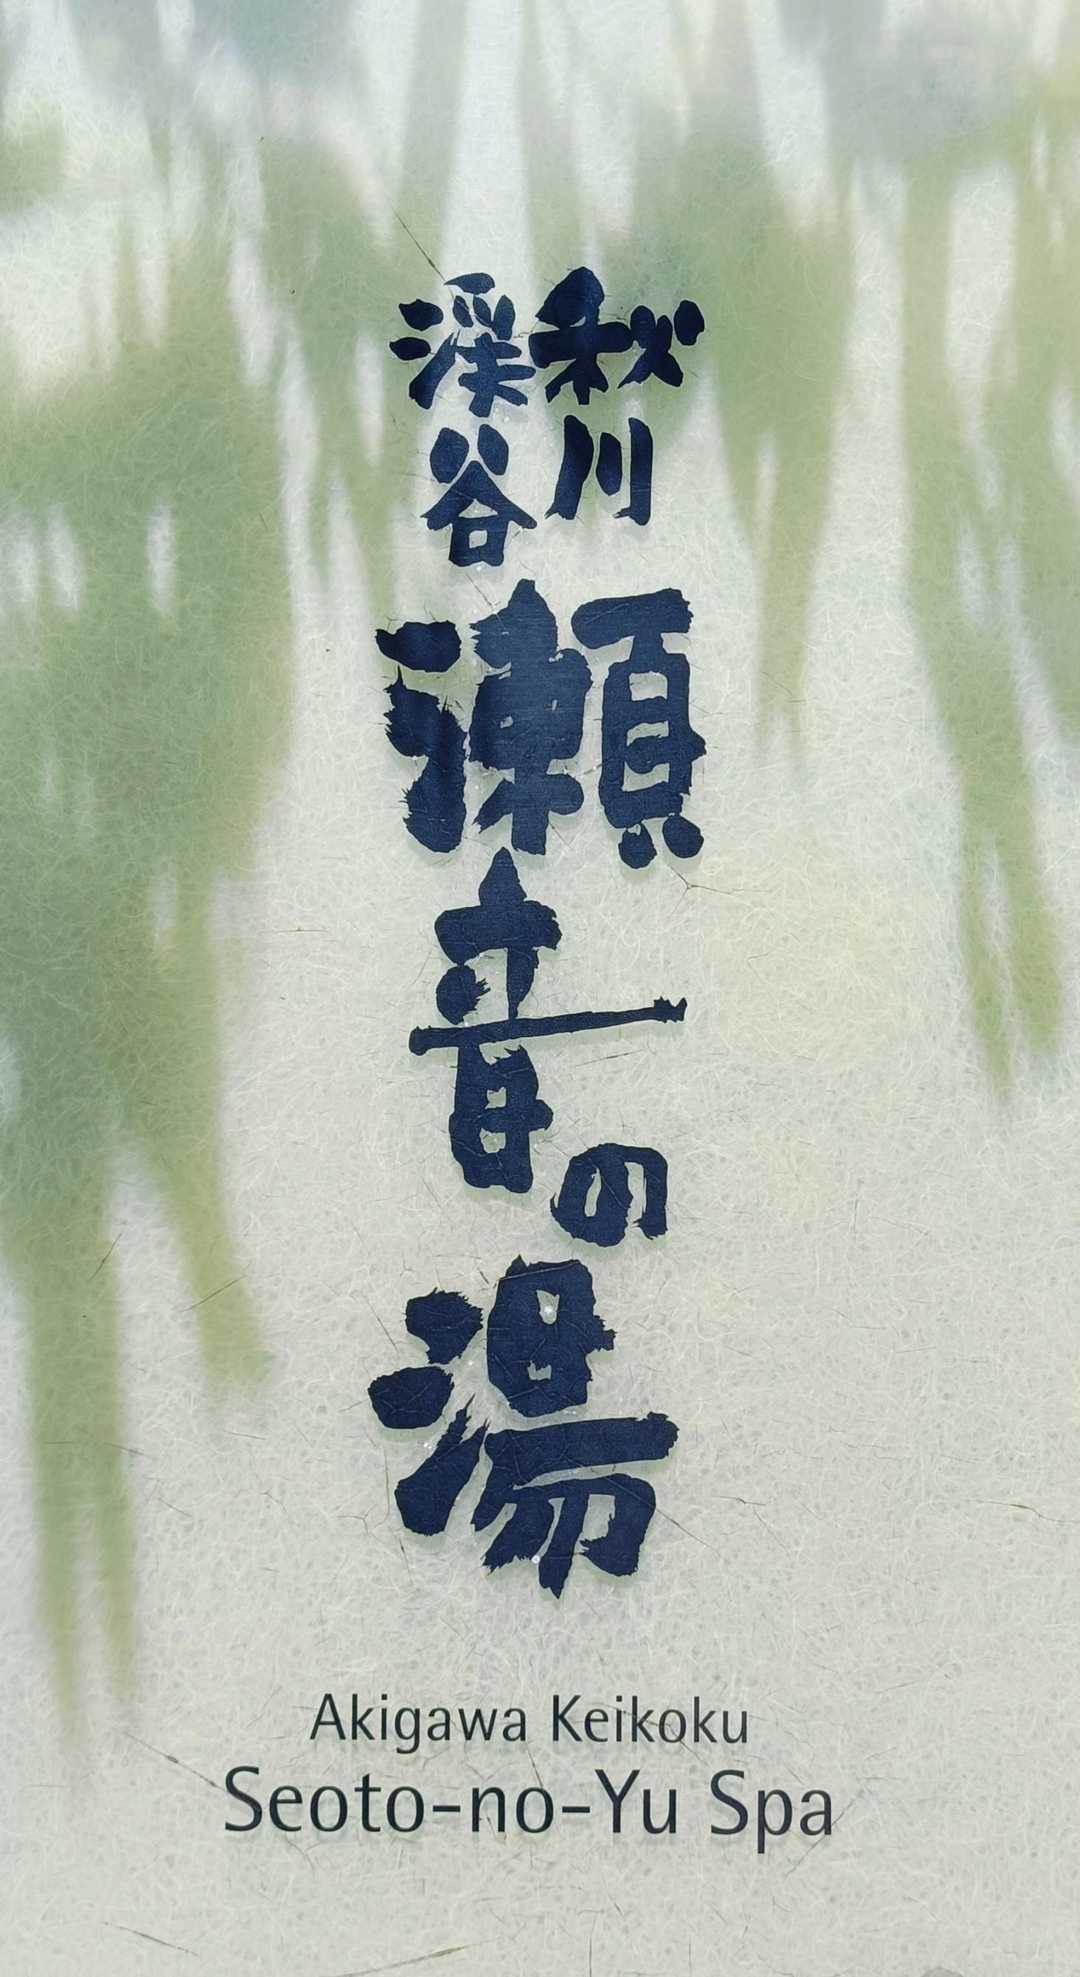 秋川
渓谷
瀬音の湯
Akigawa Keikoku
Seoto-no-Yu Spa